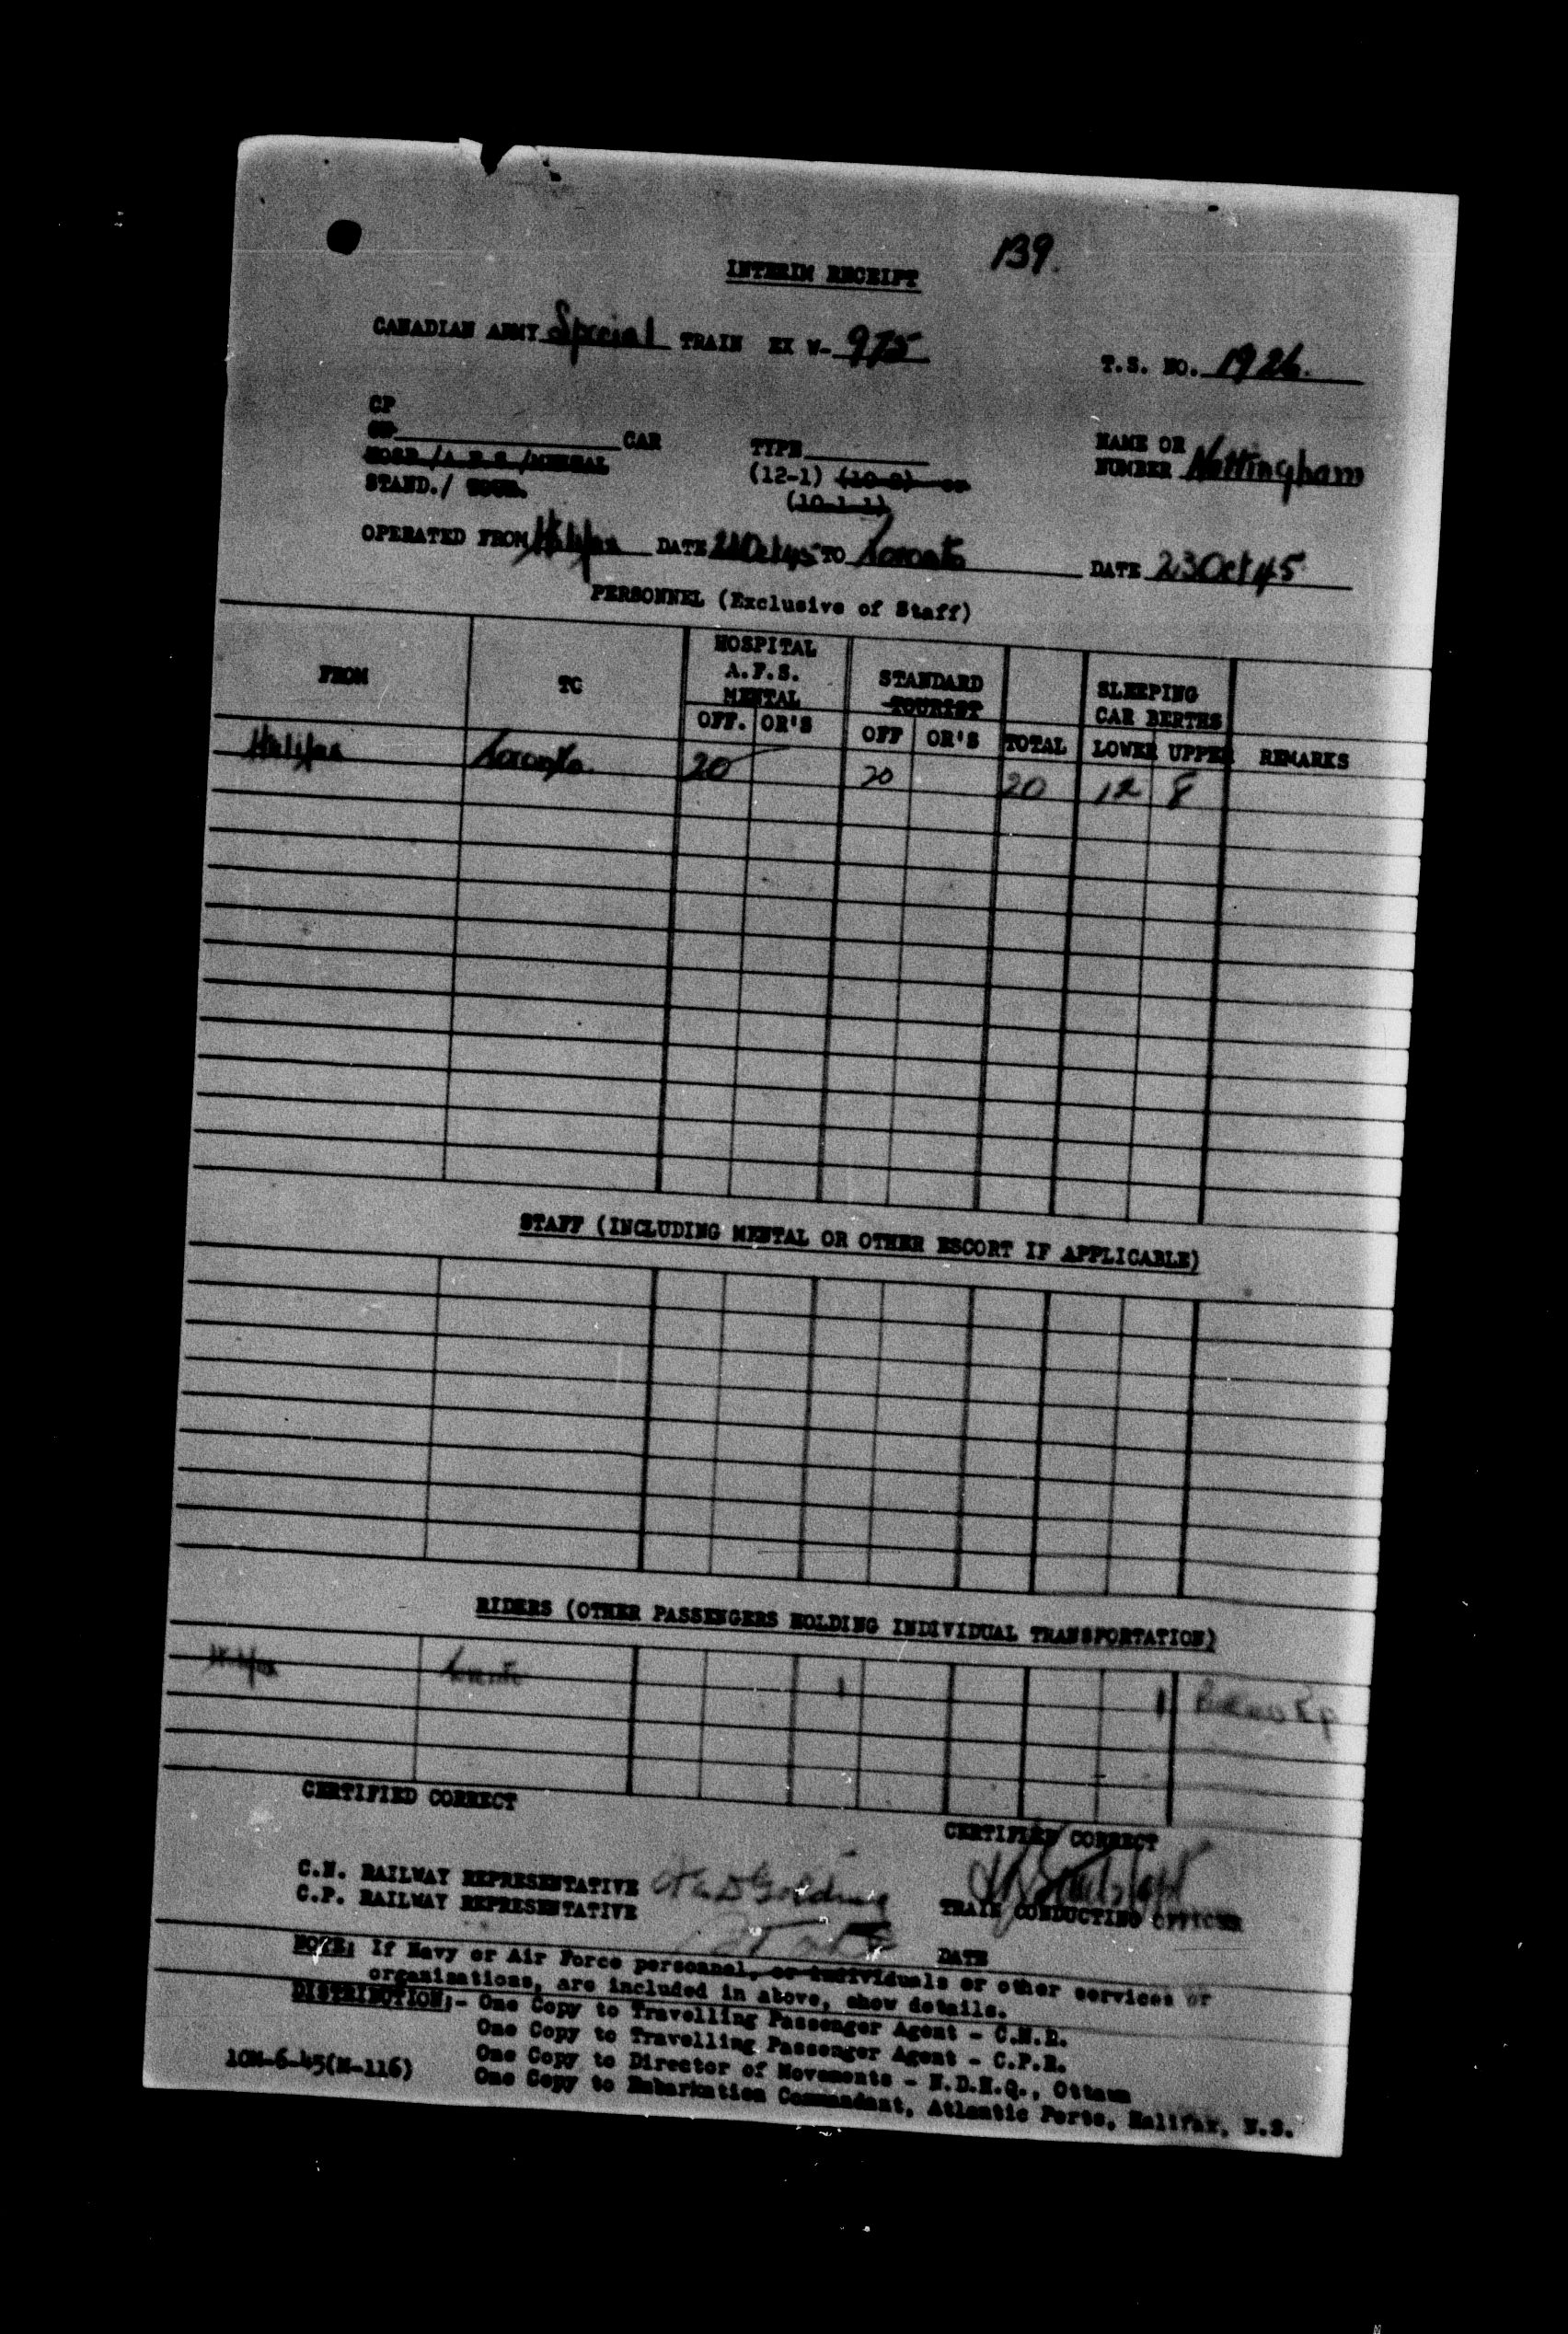 139.
INTERIM RECEIPT
CANADIAN ARMY Special TRAIN EX W- 975
T.S. NO. 1926.
CP
CAR
TYPE
NAME OR
NUMBER Nottingham
HOSP./A.F.S./MENTAL
(12-1) (10-2) or
STAND./ TOUR.
(10-1-1)
OPERATED FROM Halifax DATE Oct 45 TO Toronto DATE 23 Oct 45
PERSONNEL (Exclusive of Staff)
FROM TO HOSPITAL A.F.S. MENTAL STANDARD TOURIST SLEEPING CAR BERTHS
OFF. OR'S OFF OR'S TOTAL LOWER UPPER REMARKS
Halifax Toronto 20 20 20 12 8
STAFF (INCLUDING MENTAL OR OTHER ESCORT IF APPLICABLE)
RIDERS (OTHER PASSENGERS HOLDING INDIVIDUAL TRANSPORTATION)
Halifax Toronto 1 1
CERTIFIED CORRECT
CERTIFIED CORRECT
C.N. RAILWAY REPRESENTATIVE
C.P. RAILWAY REPRESENTATIVE
TRAIN CONDUCTING OFFICER
DATE
NOTE: If Navy or Air Force personnel, or individuals or other services or
organizations, are included in above, show details.
DISTRIBUTION:- One Copy to Travelling Passenger Agent - C.N.R.
One Copy to Travelling Passenger Agent - C.P.R.
One Copy to Director of Movements - N.D.H.Q., Ottawa
One Copy to Embarkation Commandant, Atlantic Ports, Halifax, N.S.
10M-6-45(M-116)